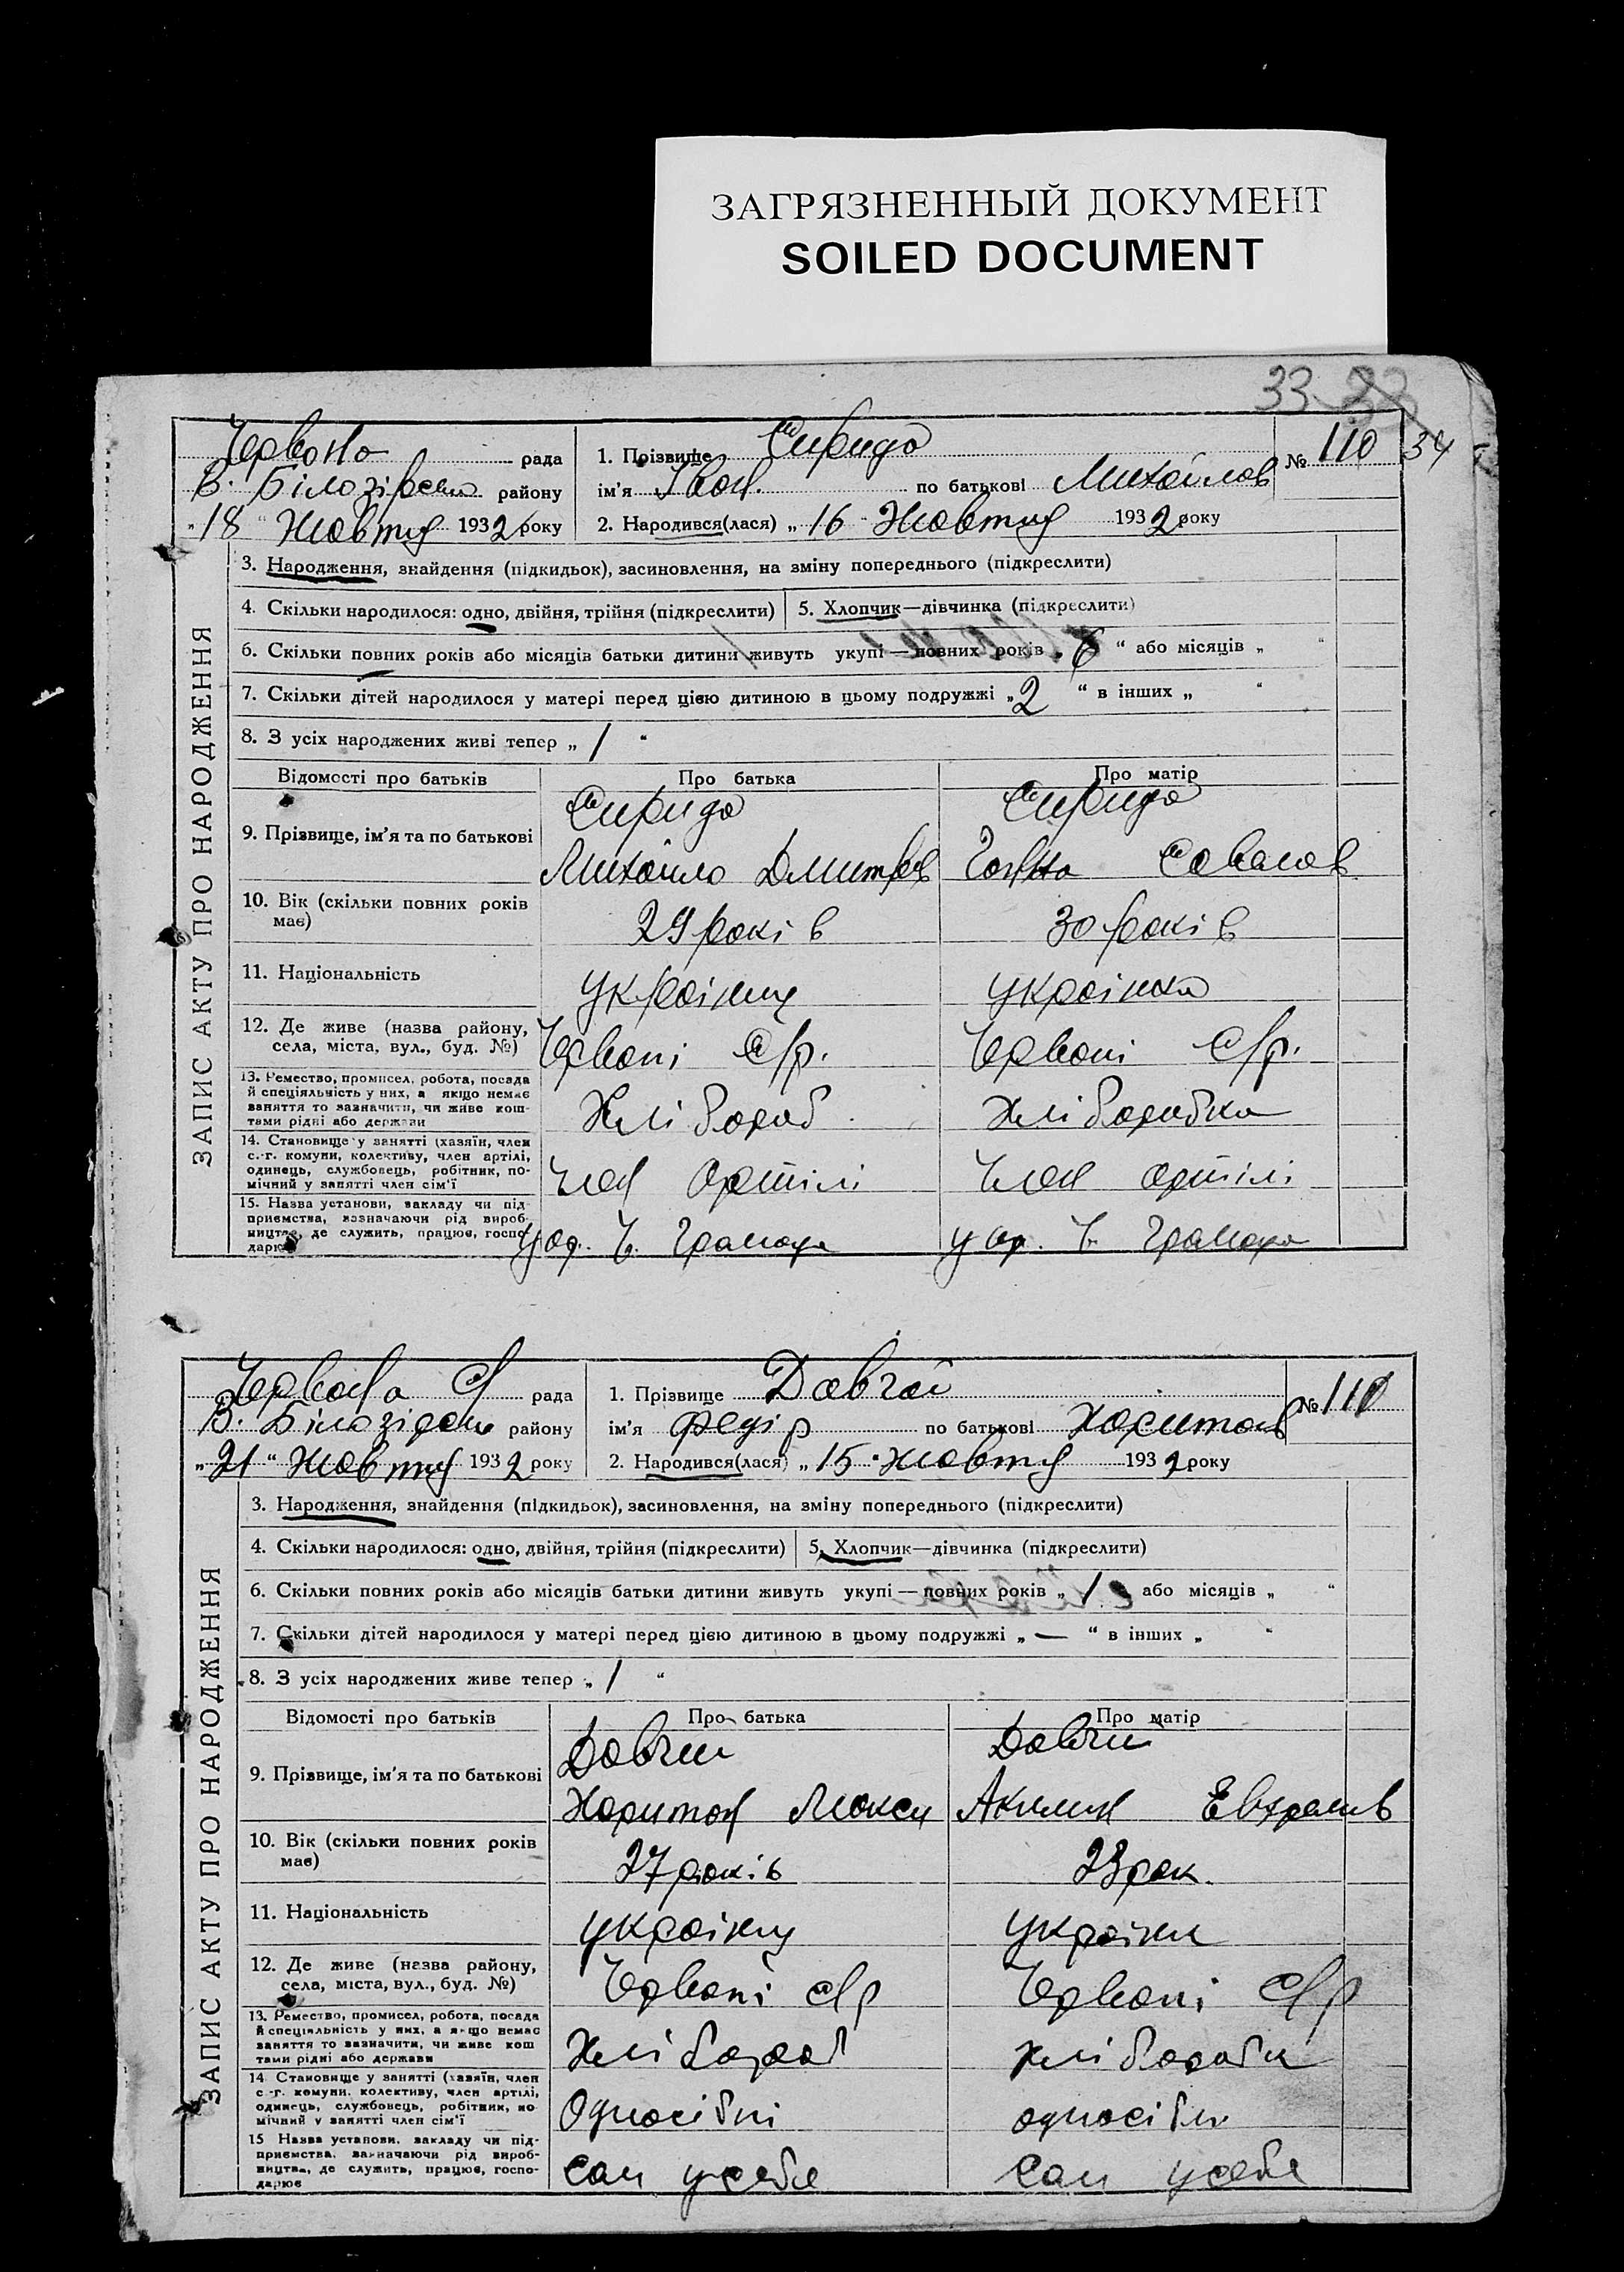 ЗАГРЯЗНЕННЫЙ ДОКУМЕНТ
SOILED DOCUMENT
33 33
34
ЗАПИС АКТУ ПРО НАРОДЖЕННЯ
Червона рада
В. Білозірськ району
„18" Жовтня 1932 року
1. Прізвище Свирида
ім'я Іван по батькові Михайлов
№ 110
2. Народився(лася) „16" Жовтня 1932 року
3. Народження, знайдення (підкидьок), засиновлення, на зміну попереднього (підкреслити)
4. Скільки народилося: одно, двійня, трійня (підкреслити) 5. Хлопчик—дівчинка (підкреслити)
6. Скільки повних років або місяців батьки дитини живуть укупі — повних років „6" або місяців „ "
7. Скільки дітей народилося у матері перед цією дитиною в цьому подружжі „2" в інших „ "
8. З усіх народжених живі тепер „1"
Відомості про батьків Про батька Про матір
9. Прізвище, ім'я та по батькові
Михайло Дмитров
10. Вік (скільки повних років має) 29 років 30 років
11. Національність українец українка
12. Де живе (назва району, села, міста, вул., буд. №) Червоні с/р. Червоні с/р.
13. Ремество, промисел, робота, посада
й спеціяльність у них, а якщо немає
заняття то зазначити, чи живе кош-
тами рідні або держави
Хлібороб Хліборобка
14. Становище у занятті (хазяїн, член
с.-г. комуни, колективу, член артілі,
одинець, службовець, робітник, по-
мічний у занятті член сім'ї
член артілі член артілі
15. Назва установи, закладу чи під-
приємства, зазначаючи рід вироб-
ництва, де служить, працює, госпо-
дарює
у ар. Ч. Грамада у ар. Ч. Грамада
ЗАПИС АКТУ ПРО НАРОДЖЕННЯ
Червона с рада
В. Білозірськ району
„21" Жовтня 1932 року
1. Прізвище Довгай
ім'я Федір по батькові Харитонов
№ 111
2. Народився(лася) „15" Жовтня 1932 року
3. Народження, знайдення (підкидьок), засиновлення, на зміну попереднього (підкреслити)
4. Скільки народилося: одно, двійня, трійня (підкреслити) 5. Хлопчик—дівчинка (підкреслити)
6. Скільки повних років або місяців батьки дитини живуть укупі — повних років „1" або місяців „ "
7. Скільки дітей народилося у матері перед цією дитиною в цьому подружжі „—" в інших „ "
8. З усіх народжених живе тепер „1"
Відомості про батьків Про батька Про матір
9. Прізвище, ім'я та по батькові
Харитон Макси Акилин
10. Вік (скільки повних років має) 27 років 23 рок.
11. Національність українец україн
12. Де живе (назва району, села, міста, вул., буд. №) Червоні с/р Червоні с/р
13. Ремество, промисел, робота, посада
й спеціяльність у них, а якщо немає
заняття то зазначити, чи живе кош
тами рідні або держави
Хлібороб хлібороби
14 Становище у занятті (хазяїн, член
с-г. комуни, колективу, член артілі,
одинець, службовець, робітник, по
мічний у занятті член сім'ї
Односібні односібн
15 Назва установи, закладу чи під-
приємства, зазначаючи рід вироб-
ництва, де служить, працює, госпо-
дарює
Сам у себе Сам у себе